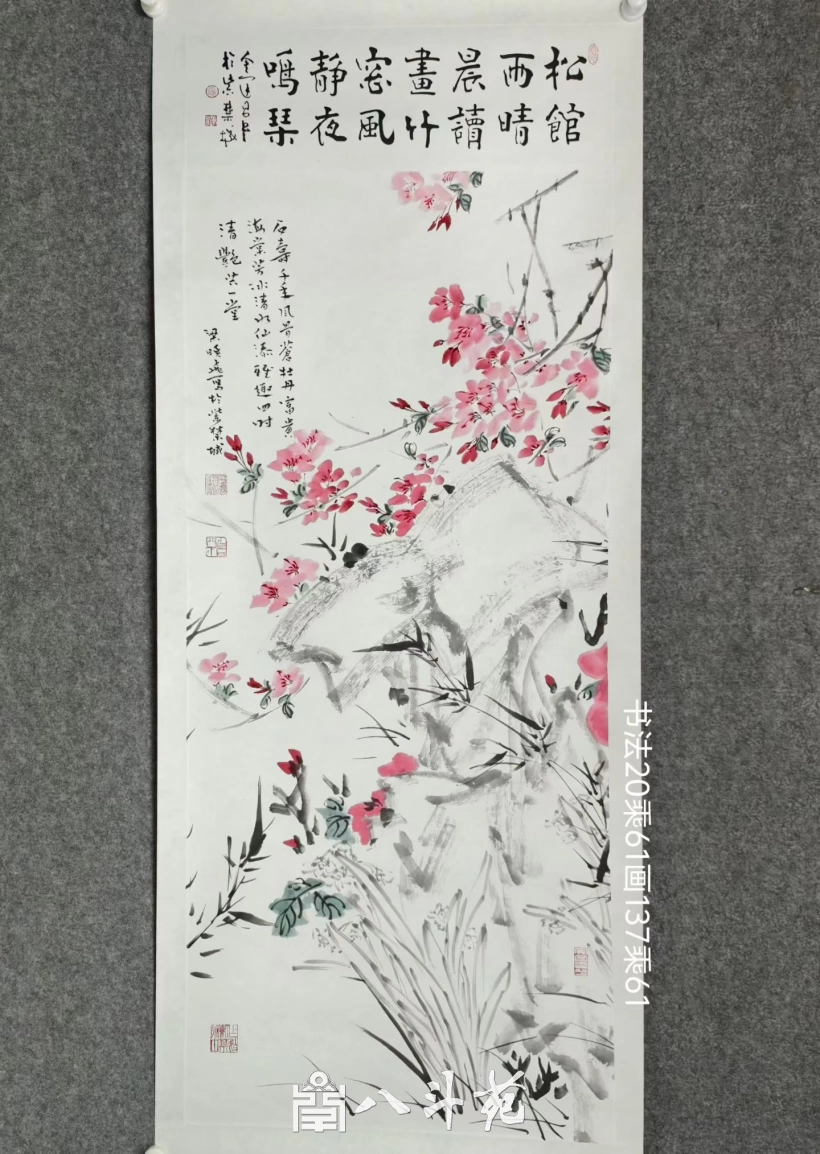 松館
雨晴
晨讀
畫竹
窓風
靜夜
鳴琴
於紫禁城
石壽千年風骨蒼牡丹富貴
海棠芳冰清水仙添雅趣四时
清艷共一堂
梁曉 寫於紫禁城
书法20乘61画137乘61
八斗苑